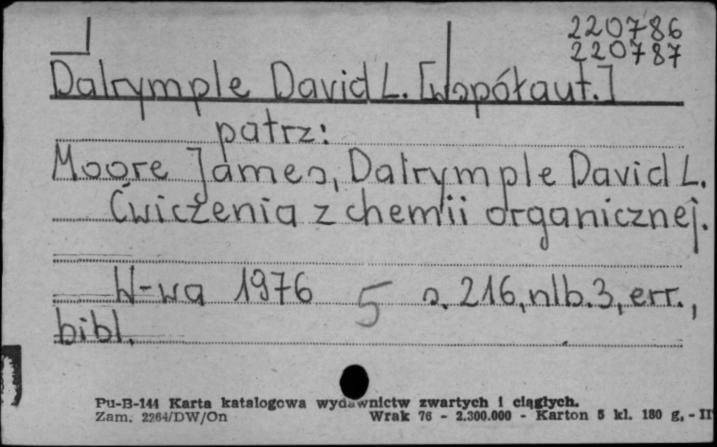 220786
220787
Dalrymple David L. [współaut.]
patrz:
Moore James, Dalrymple David L.
Ćwiczenia z chemii organicznej.
W-wa 1976 5 s. 216, nlb. 3, err.,
bibl.
Pu-B-144 Karta katalogowa wydawnictw zwartych i ciągłych.
Zam. 2264/DW/On Wrak 76 - 2.300.000 - Karton 5 kl. 180 g. - II